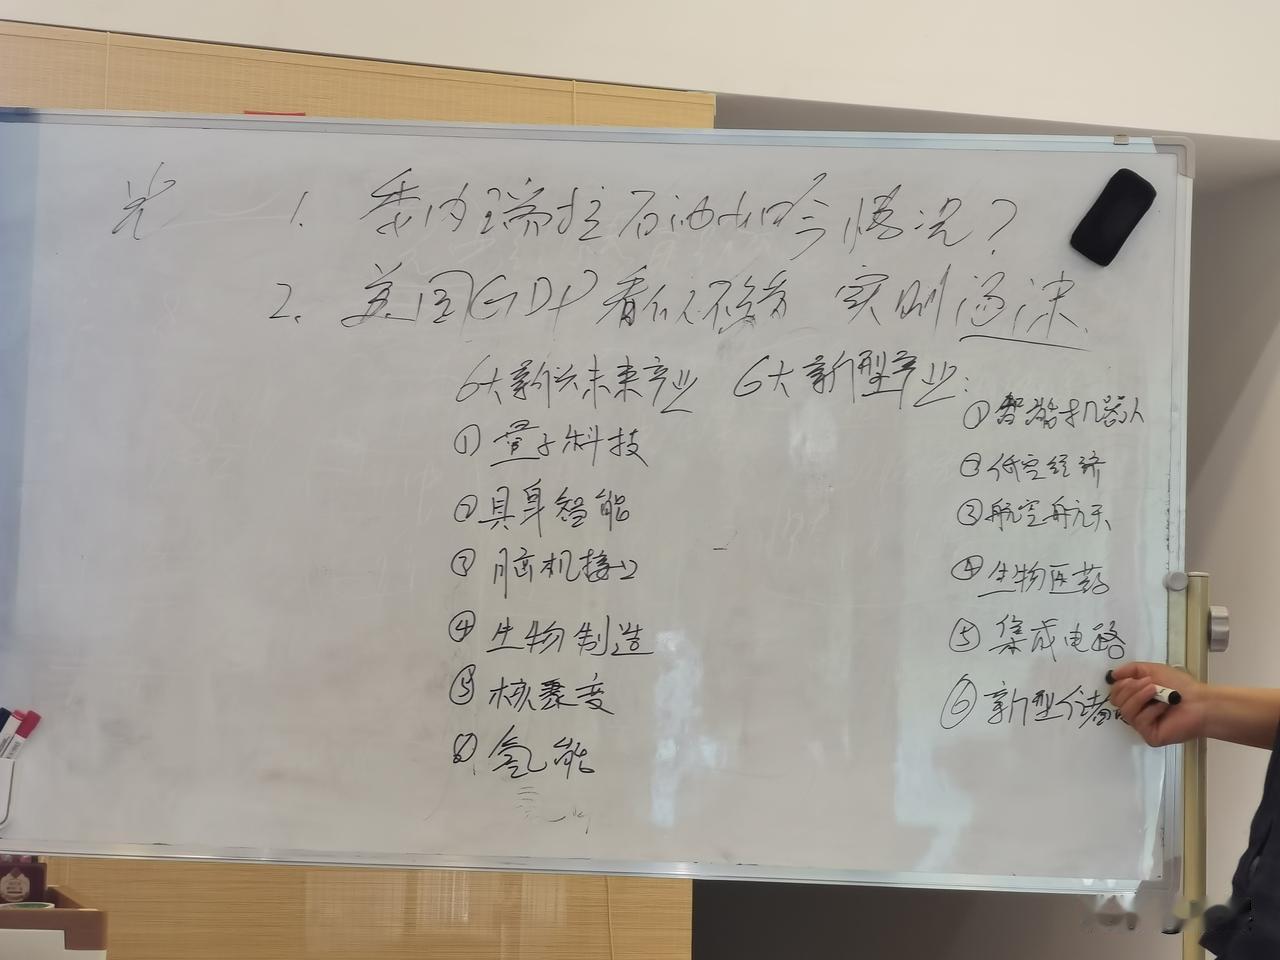 光 1. 委内瑞拉石油如今情况?
2. 美国GDP看似不错 实则逐沫.
6大新兴未来产业 6大新型产业:
① 量子科技
② 具身智能
③ 脑机接口
④ 生物制造
⑤ 核聚变
⑥ 氢能
① 智能机器人
② 低空经济
③ 航空航天
④ 生物医药
⑤ 集成电路
⑥ 新型储